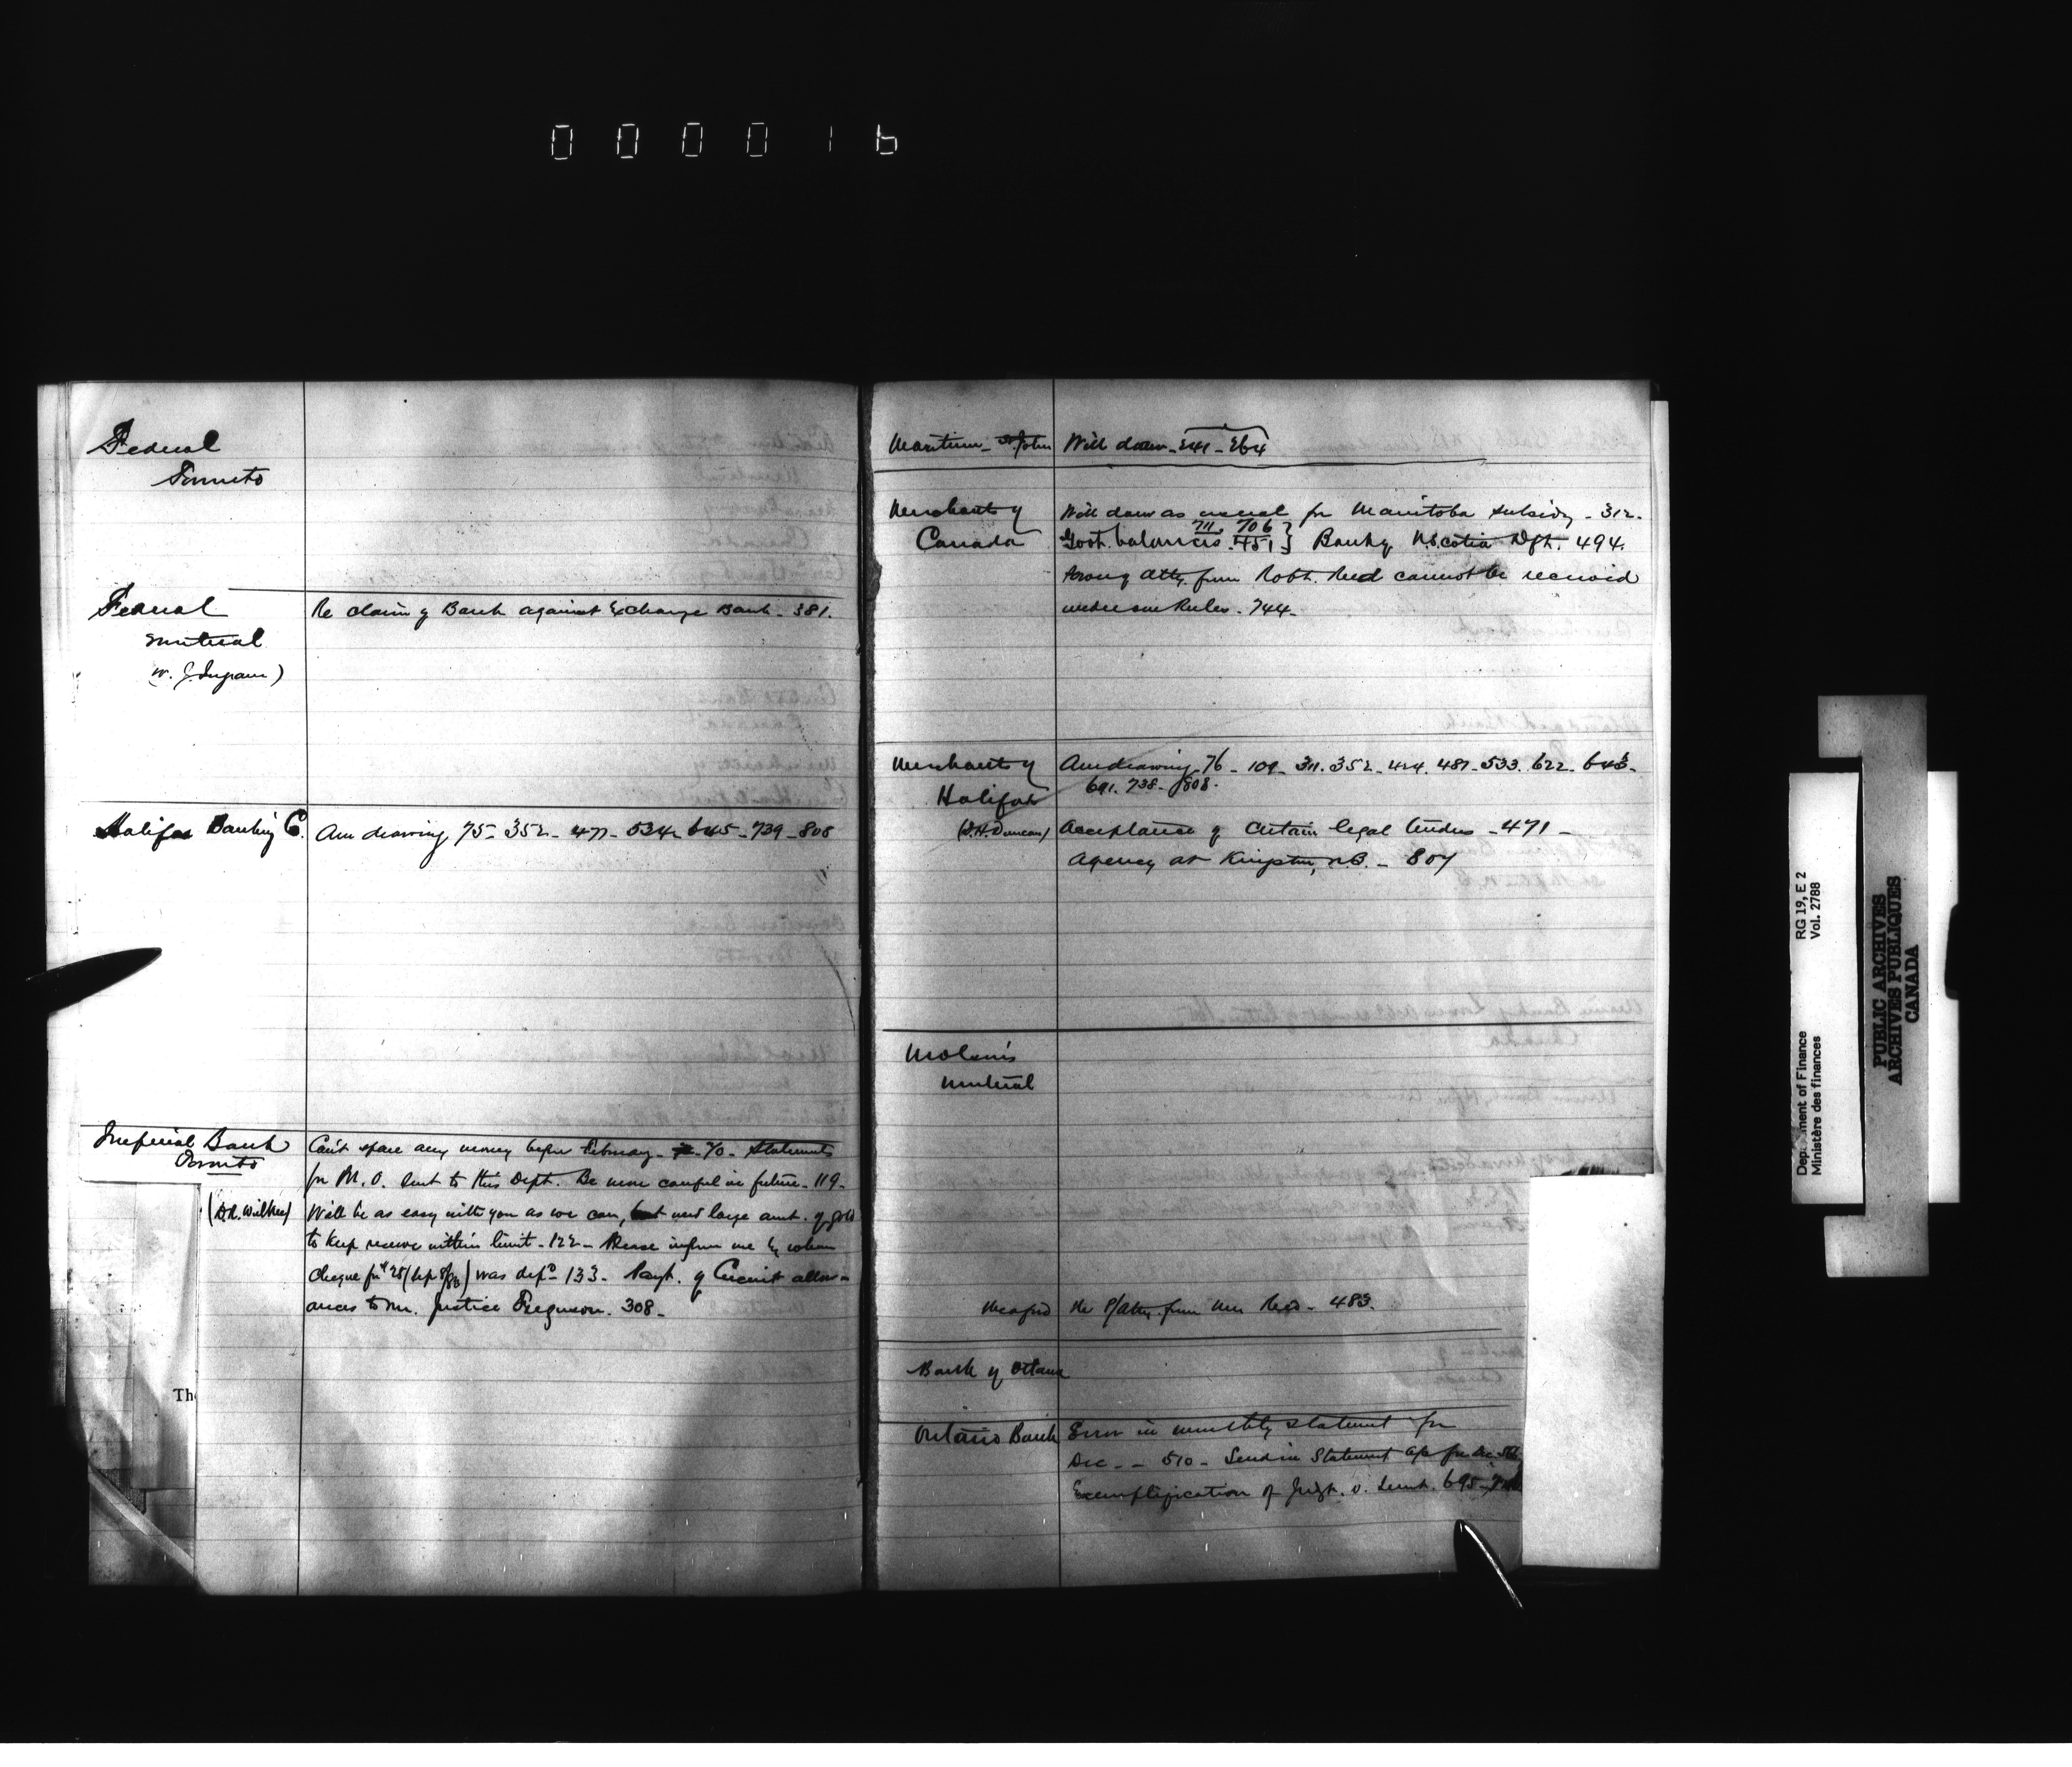 000016
Federal
Toronto
Federal
Montreal
(W. J. Ingram)
Re claim of Bank against Exchange Bank - 381.
Halifax Banking C.
Am drawing 75 - 352 - 477 - 534 - 645 - 739 - 808
Imperial Bank
Toronto
(D.R. Wilkie)
Can't spare any money before February - 70 - Statements
for M. O. sent to this Dept. Be more careful in future - 119 -
Will be as easy with you as we can, but need large amt. of gold
to keep reserve within limit - 122 - Please inform me by whom
cheque was dep - 133 - Payt. of Circuit allow-
ances to Mr. Justice Ferguson. 308 -
Th
Maritime - St John
Will draw - 241 - 264
Merchants of
Canada
Will draw as usual for Manitoba subsidy - 312 -
711. 706
Govt. balances. 451 } Bank of N. Scotia Dft. 494.
Atty. from Robt. Reed cannot be received
under our Rules - 744 -
Merchants of
Halifax
(D.H. Duncan)
Am drawing - 76 - 109 - 311. 352 - 424. 487 - 533. 622 - 643 -
691. 738 - 808.
Acceptance of certain legal tenders - 471 -
Agency at Kingston, N.B. - 807
Molson's
Montreal
Meaford
Re P/Atty. from Reed - 483.
Bank of Ottawa
Ontario Bank
Error in monthly statement for
Dec - - 510 - Send in Statement for Dec.
Exemplification of Judgt. v. 695 -
RG 19, E 2
Vol. 2788
Department of Finance
Ministère des finances
PUBLIC ARCHIVES
ARCHIVES PUBLIQUES
CANADA